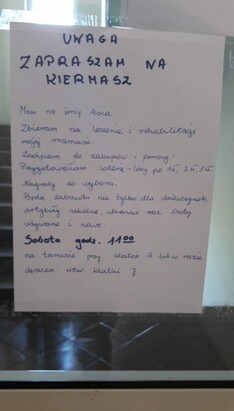 UWAGA
ZAPRASZAM NA
KIERMASZ
Mam na imię Asia
Zbieram na leczenie i rehabilitację
mojej mamusi.
Zachęcam do zakupów i pomocy!
Przygotowałam loterię - losy po 1zł, 2zł, 5zł.
Nagrody do wyboru.
zabawki nie tylko dla dziewczynek,
artykuły szkolne, ubrania oraz buty
używane i nowe.
Sobota godz. 11 00
na tarasie przy klatce A lub w razie
deszczu wew klatki